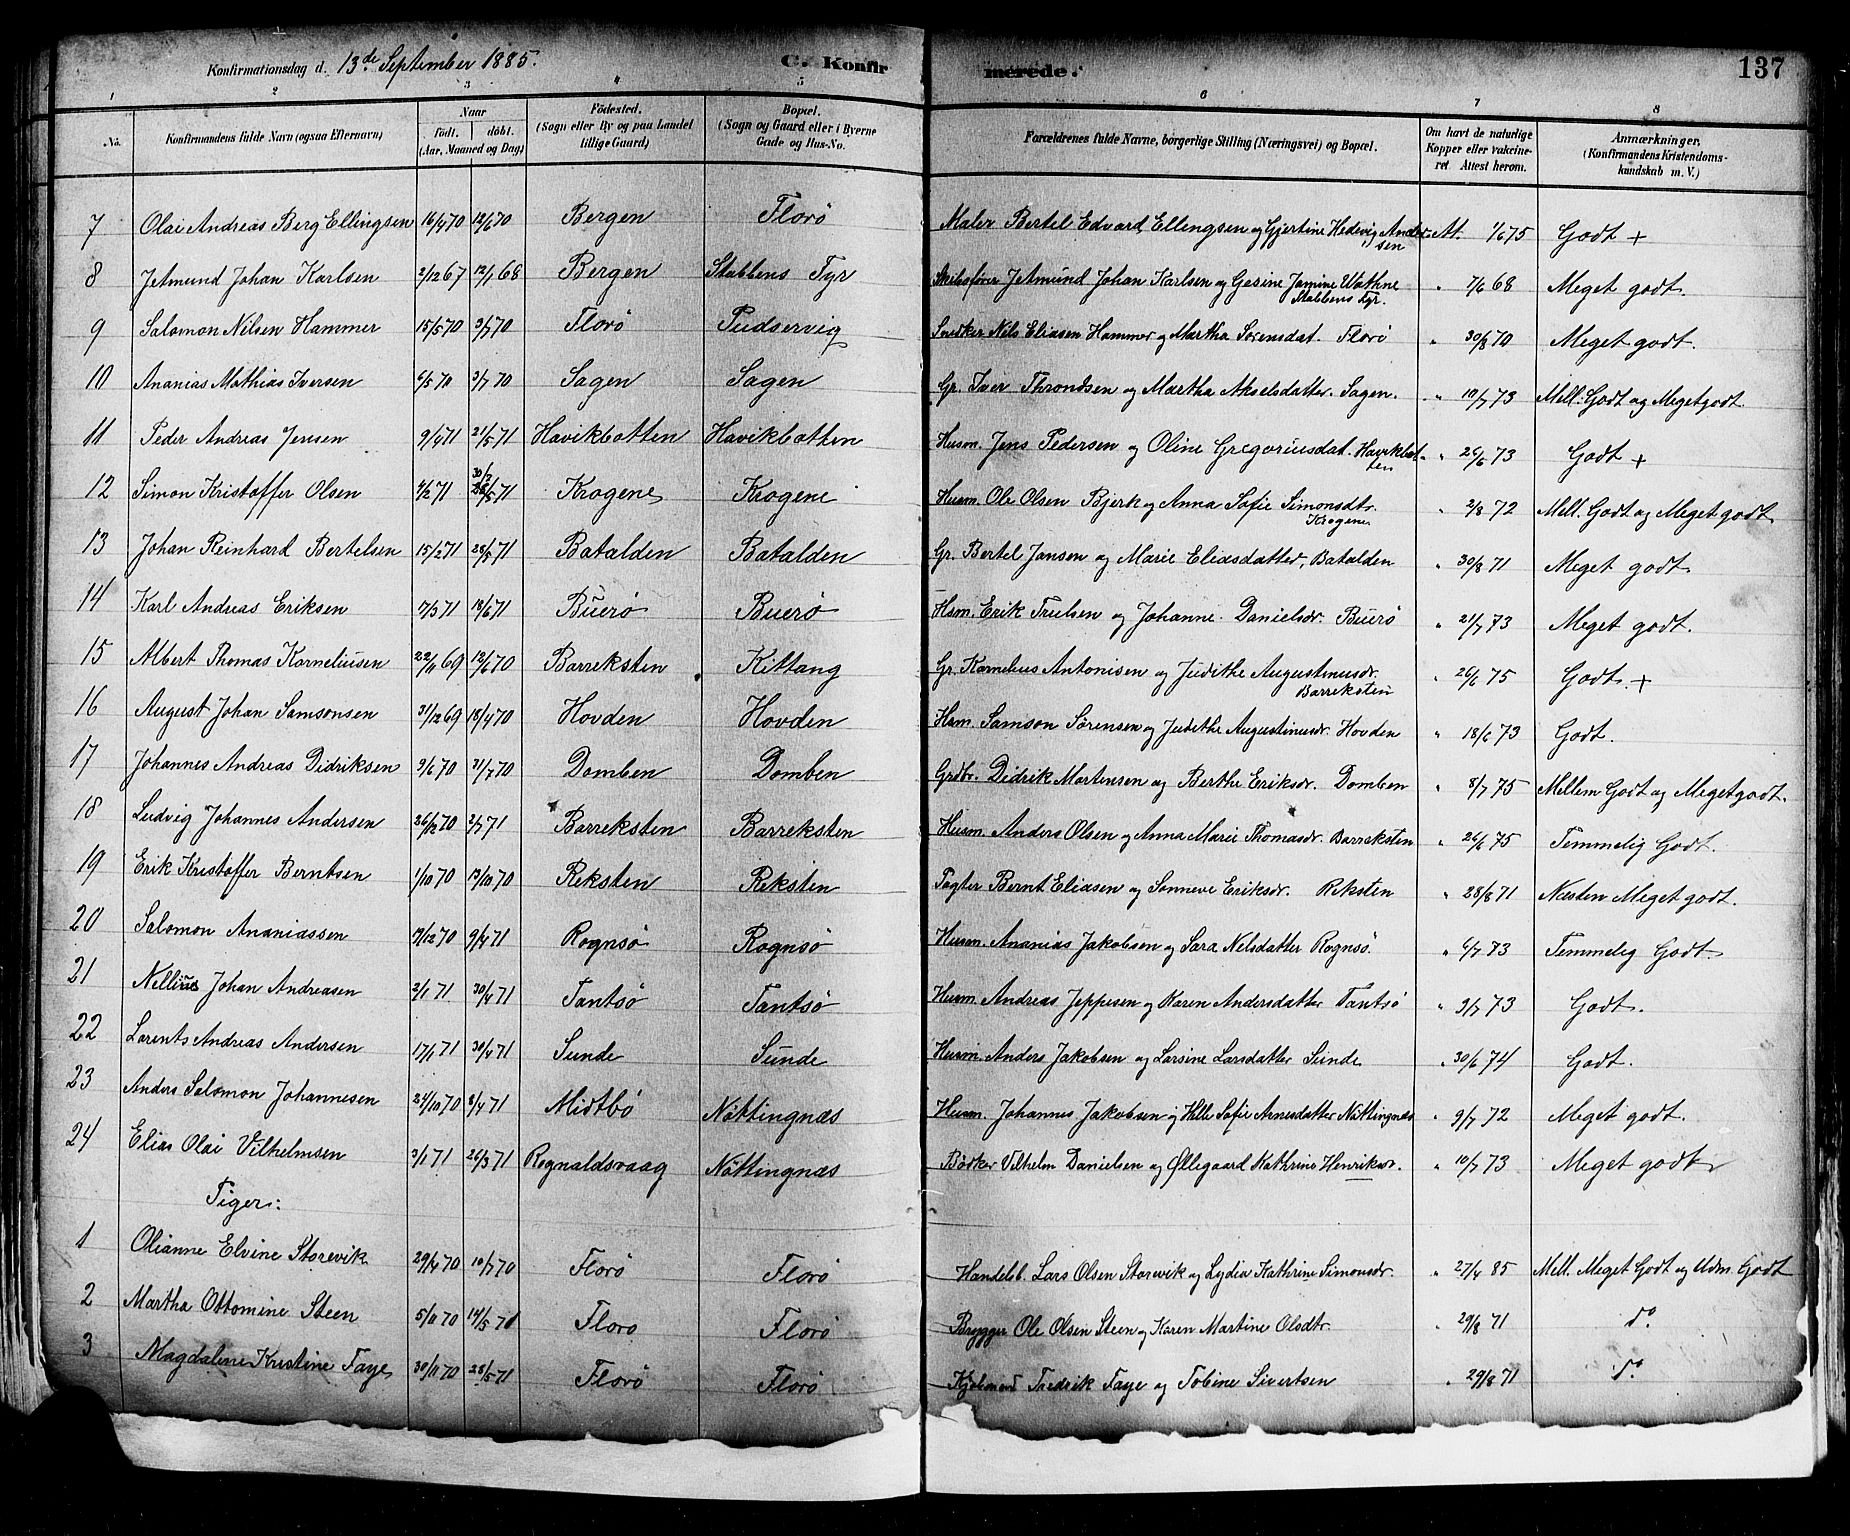 Konfirmationsdag d. 13de September 1885. C. Konfirmerede. 137
1 2 3 4 5 6 7 8
No. Konfirmandens fulde Navn (ogsaa Efternavn) Naar födt. döbt. (Aar, Maaned og Dag) Födested. (Sogn eller By og paa Landet tillige Gaard) Bopæl. (Sogn og Gaard eller i Byerne Gade og Hus-No. Forældrenes fulde Navne, borgerlige Stilling (Næringsvei) og Bopæl. Om havt de naturlige Kopper eller vakcineret Attest herom. Anmærkninger. (Konfirmandens Kristendomskundskab m. V.)
7 Olai Andreas Berg Ellingsen 16/4 70 12/6 70 Bergen Florö Maler Bertel Edvard Ellengsen og Gjertine Hedevig Andersen At. 1/6 75 Godt +
8 Jetmund Johan Karlsen 2/12 67 12/1 68 Bergen Stabbens Fyr Skibsfører Jetmund Johan Karlsen og Gesine Jamine Wathne Stabbens Fyr. " 7/6 68 Meget godt.
9 Salomon Nilsen Hammer 15/5 70 3/7 70 Florö Pudservig Snedker Nels Eliasen Hammer og Martha Sorensdat. Florö " 30/8 70 Meget godt.
10 Ananias Mathias Iversen 6/5 70 3/7 70 Sagen Sagen Gr. Iver Throndsen og Martha Akselsdatter. Sagen. " 10/7 73 Mell. Godt og Megetgodt
11 Peder Andreas Jensen 9/4 71 21/5 71 Havikbotten Havikbotten Husm. Jens Pedersen og Oline Gregoriusdat. Havikbotten " 26/6 73 Godt +
12 Simon Kristoffer Olsen 4/2 71 28/5 71 Krogene Krogene Husm. Ole Olsen Bjerk og Anna Sofie Simonsdtr. Krogene " 2/8 72 Mell. Godt og Meget godt.
13 Johan Reinhard Bertelsen 15/2 71 28/5 71 Batalden Batalden Gr. Bertel Jansen og Marie Eliasdatter, Batalden " 30/8 71 Meget godt.
14 Karl Andreas Eriksen 7/3 71 18/6 71 Buerö Buerö Hsm. Erik Truelsen og Johanne Danielsdr. Buerö " 21/7 73 Meget godt.
15 Albert Thomas Korneliusen 22/11 69 12/6 70 Barreksten Kittang Gr. Kornelius Antonisen og Judithe Augustinusdr. Barreksten " 26/6 75 Godt. +
16 August Johan Samsonsen 31/12 69 18/4 70 Hovden Hovden Hsm. Samson Sørensen og Judithe Augustinusdr. Hovden " 18/6 73 Godt.
17 Johannes Andreas Didriksen 9/6 70 31/7 70 Domben Domben Grdbr. Didrik Mortensen og Berthe Eriksdr. Domben " 8/7 75 Mellem Godt og Megetgodt.
18 Ludvig Johannes Andersen 26/12 70 2/7 71 Barreksten Barreksten Husm. Anders Olsen og Anna Marie Thomasdr. Barreksten " 26/6 75 Temmelig Godt.
19 Erik Kristoffer Berntsen 1/10 70 19/10 70 Reksten Reksten Fogter Bernt Eliasen og Sonneve Eriksdr. Reksten " 28/8 71 Næsten Meget godt.
20 Salomon Ananiassen 17/12 70 9/4 71 Rognsö Rognsö Husm. Ananias Jakobsen og Sara Nelsdatter Rognsö. " 6/7 73 Temmelig Godt.
21 Nellius Johan Andreasen 2/1 71 30/4 71 Tantsö Tantsö Husm. Andreas Jeppesen og Karen Andersdatter Tantsö " 3/7 73 Godt.
22 Larents Andreas Andersen 17/1 71 30/4 71 Sunde Sunde Husm. Anders Jakobsen og Larsine Larsdatter Sunde " 30/6 74 Godt.
23 Anders Salomon Johannesen 24/10 70 8/4 71 Midtbö Nöttingnæs Husm. Johannes Jakobsen og Helle Sofie Arnesdatter Nöttingnæs " 9/7 72 Meget godt.
24 Elias Olai Vilhelmsen 3/1 71 26/3 71 Rognaldsvaag Nöttingnæs Bödker Vilhelm Danielsen og Øllegaard Kathrine Henriksdr. " 10/7 73 Meget godt
Piger:
1 Olianne Elvine Storevik 29/4 70 10/7 70 Florö Florö Handelsb. Lars Olsen Storevik og Lydia Kathrine Simonsdr. " 27/4 85 Mell. Meget Godt og Udm. Godt
2 Martha Ottomine Steen 5/11 70 14/5 71 Floro Florö Brygger Ole Olsen Steen og Karen Martine Olsdtr. " 29/8 71 do
3 Magdalene Kristine Faye 30/11 70 28/5 71 Florö Florö Fredrik Faye og Tobine Sivertsen " 29/8 71 do